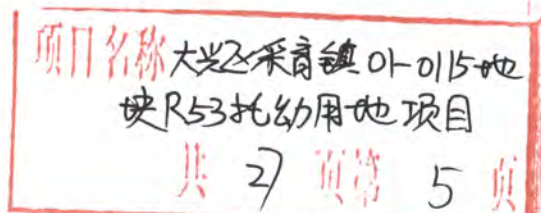 项目名称大兴区采育镇01-0115地
块R53托幼用地项目
共 27 页第 5 页